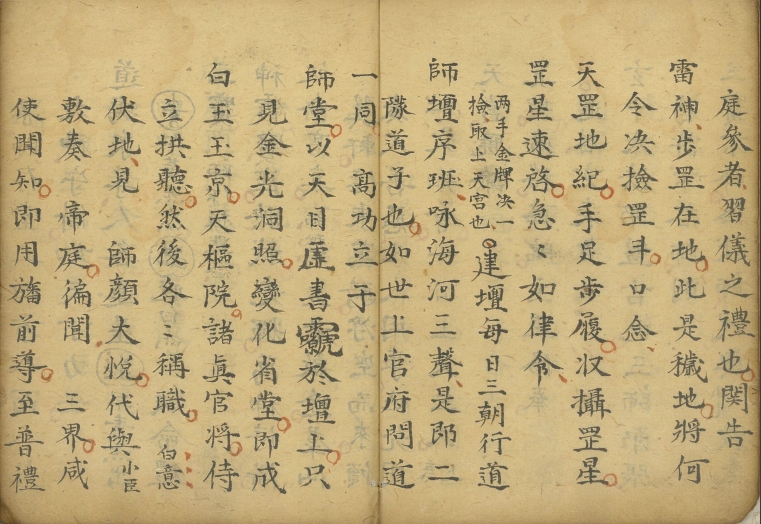 庭參者習儀之禮也関告
雷神步罡在地此是穢地將何
令决撿罡斗口念
天罡地紀手足步履収攝罡星
罡星速啓急〻如律令
两手金牌决一
撿取上天宫也
建壇每日三朝行道
師壇序班咏海河三聲是即二
隊道子也如世上官府問道
一同高功立于
師堂以天目虚書於壇上只
見金光洞照變化省堂即成
白玉玉京天樞院諸眞官將侍
立拱聽然後各〻稱職白意
伏地見師顔大悅代與小臣
敷奏帝庭徧聞三界咸
使聞知即用旛前導至普禮